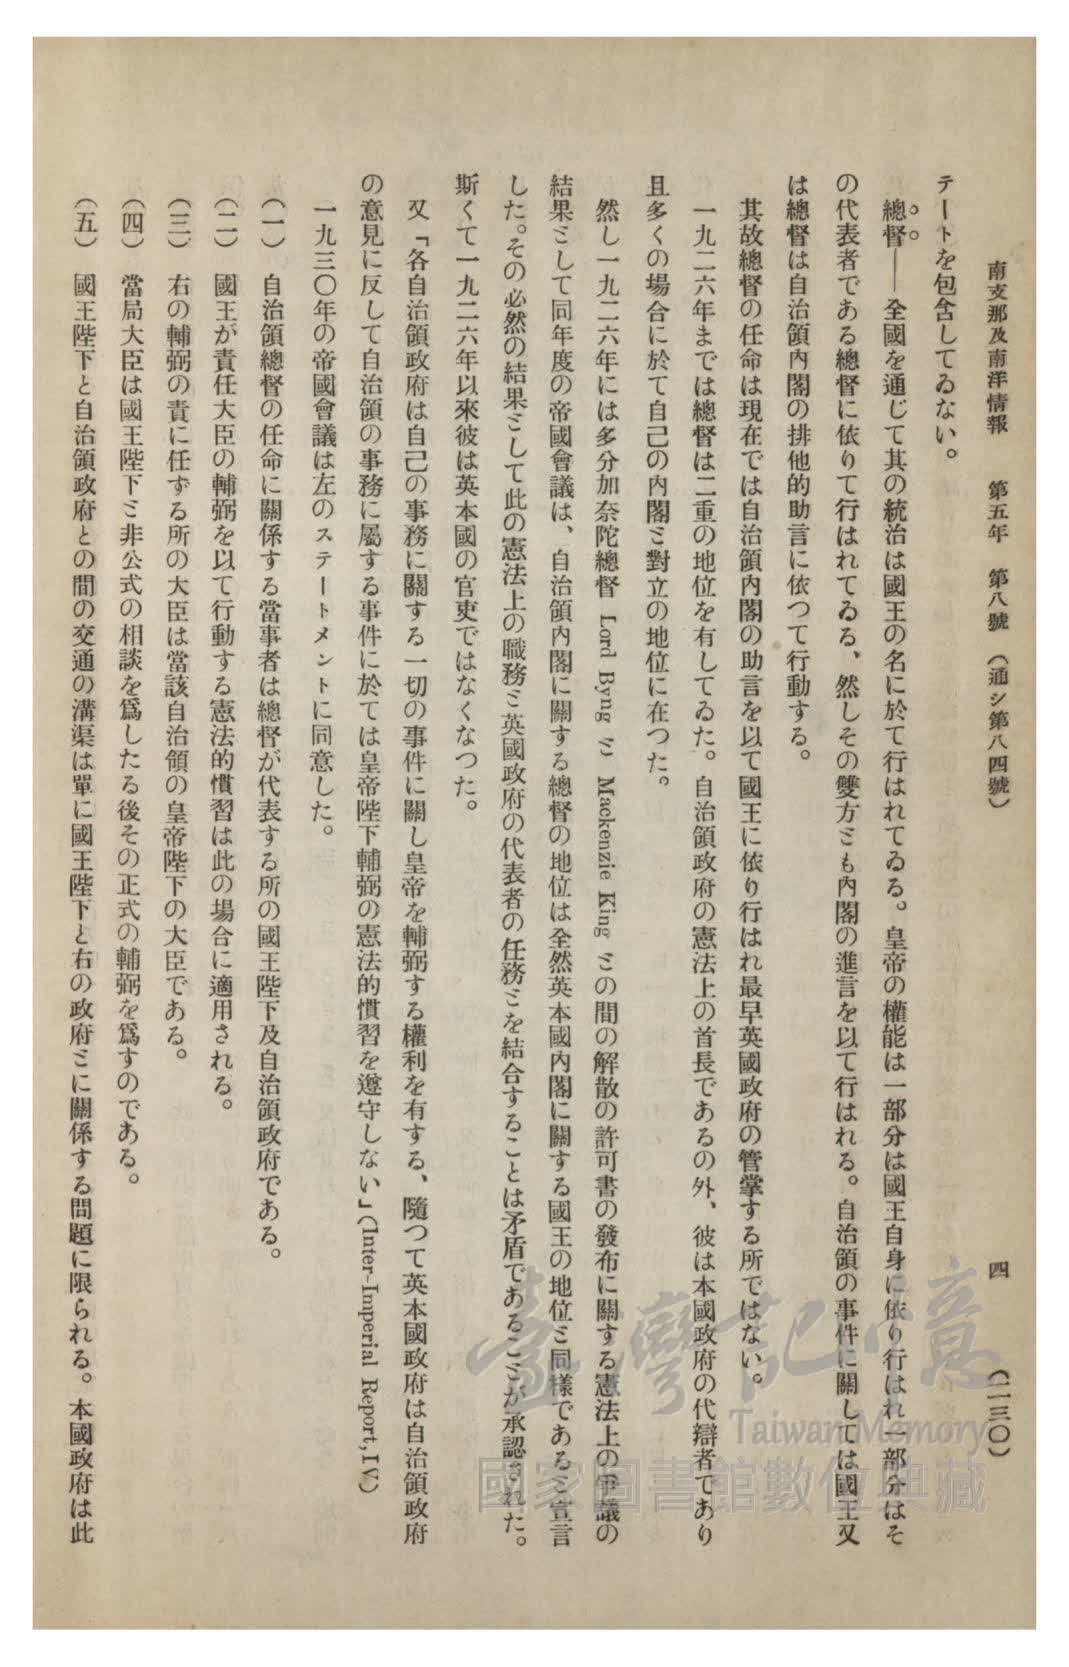 南支那及南洋情報　第五年　第八號　（通シ第八四號）　四　（二三〇）
テートを包含してゐない。
總督——全國を通じて其の統治は國王の名に於て行はれてゐる。皇帝の權能は一部分は國王自身に依り行はれ一部分はそ
の代表者である總督に依りて行はれてゐる、然しその雙方とも內閣の進言を以て行はれる。自治領の事件に關しては國王又
は總督は自治領內閣の排他的助言に依つて行動する。
其故總督の任命は現在では自治領內閣の助言を以て國王に依り行はれ最早英國政府の管掌する所ではない。
一九二六年までは總督は二重の地位を有してゐた。自治領政府の憲法上の首長であるの外、彼は本國政府の代辯者であり
且多くの場合に於て自己の內閣と對立の地位に在つた。
然し一九二六年には多分加奈陀總督 Lord Byng と Mackenzie King との間の解散の許可書の發布に關する憲法上の爭議の
結果として同年度の帝國會議は、自治領內閣に關する總督の地位は全然英本國內閣に關する國王の地位と同樣であると宣言
した。その必然の結果として此の憲法上の職務と英國政府の代表者の任務とを結合することは矛盾であることが承認された。
斯くて一九二六年以來彼は英本國の官吏ではなくなつた。
又「各自治領政府は自己の事務に關する一切の事件に關し皇帝を輔弼する權利を有する、隨つて英本國政府は自治領政府
の意見に反して自治領の事務に屬する事件に於ては皇帝陛下輔弼の憲法的慣習を遵守しない」（Inter-Imperial Report,IV）
一九三〇年の帝國會議は左のステートメントに同意した。
（一）　自治領總督の任命に關係する當事者は總督が代表する所の國王陛下及自治領政府である。
（二）　國王が責任大臣の輔弼を以て行動する憲法的慣習は此の場合に適用される。
（三）　右の輔弼の責に任ずる所の大臣は當該自治領の皇帝陛下の大臣である。
（四）　當局大臣は國王陛下と非公式の相談を爲したる後その正式の輔弼を爲すのである。
（五）　國王陛下と自治領政府との間の交通の溝渠は單に國王陛下と右の政府とに關係する問題に限られる。本國政府は此
臺灣記憶
Taiwan Memory
國家圖書館數位典藏